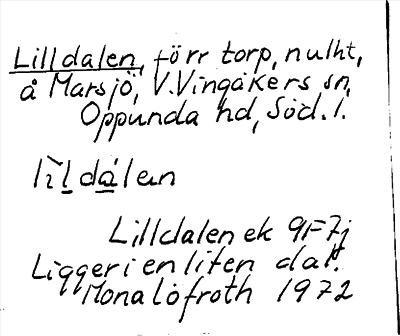 Lilldalen, förr torp, nu lht,
å Marsjö, V. Vingåkers sn,
Oppunda hd, Söd. l.
lìldálen
Lilldalen ek 9F7j
Ligger i en liten dal.
Mona Löfroth 1972